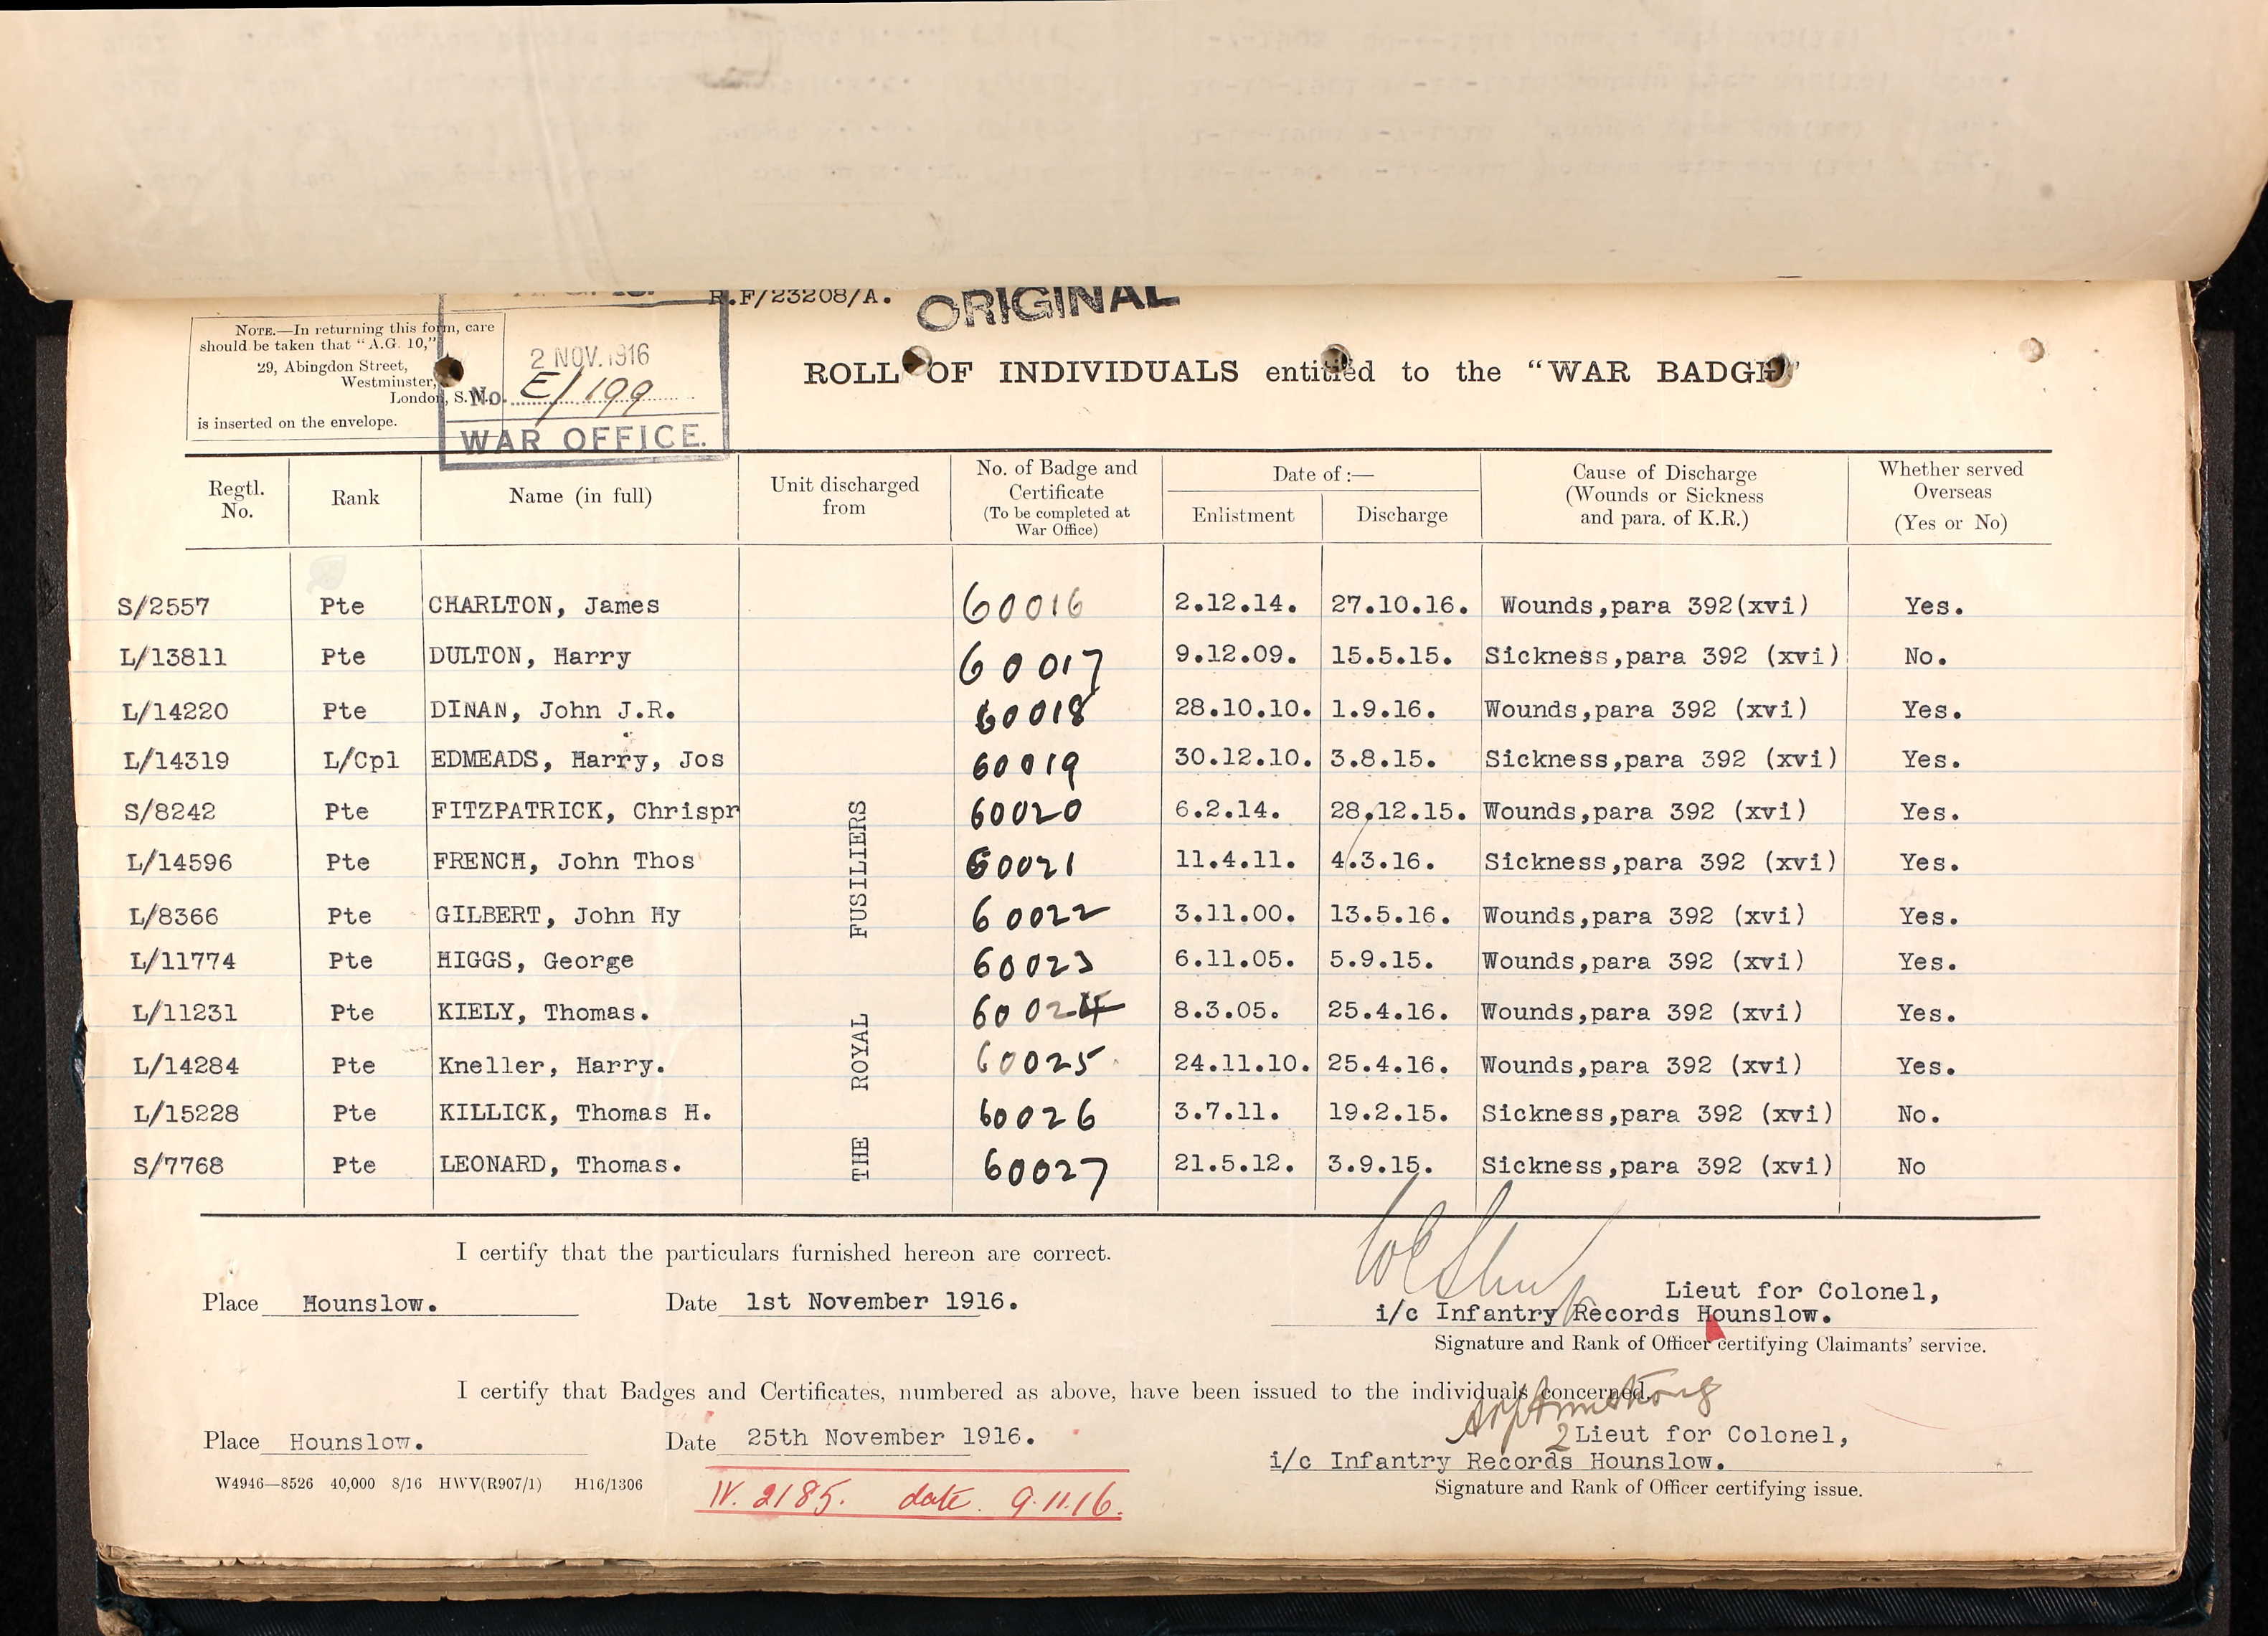 R.F/23208/A.
ORIGINAL
NOTE.—In returning this form, care
should be taken that "A.G. 10,"
29, Abingdon Street,
Westminster,
London, S.W.
is inserted on the envelope.
2 NOV. 1916
No. E/199
WAR OFFICE.
ROLL OF INDIVIDUALS entitled to the "WAR BADGE"
Regtl. No. Rank Name (in full) Unit discharged from No. of Badge and Certificate (To be completed at War Office) Date of :— Enlistment Discharge Cause of Discharge (Wounds or Sickness and para. of K.R.) Whether served Overseas (Yes or No)
S/2557 Pte CHARLTON, James 60016 2.12.14. 27.10.16. Wounds,para 392(xvi) Yes.
L/13811 Pte DULTON, Harry 60017 9.12.09. 15.5.15. Sickness,para 392 (xvi) No.
L/14220 Pte DINAN, John J.R. 60018 28.10.10. 1.9.16. Wounds,para 392 (xvi) Yes.
L/14319 L/Cpl EDMEADS, Harry, Jos 60019 30.12.10. 3.8.15. Sickness,para 392 (xvi) Yes.
S/8242 Pte FITZPATRICK, Chrispr 60020 6.2.14. 28.12.15. Wounds,para 392 (xvi) Yes.
L/14596 Pte FRENCH, John Thos 60021 11.4.11. 4.3.16. Sickness,para 392 (xvi) Yes.
L/8366 Pte GILBERT, John Hy 60022 3.11.00. 13.5.16. Wounds,para 392 (xvi) Yes.
L/11774 Pte HIGGS, George 60023 6.11.05. 5.9.15. Wounds,para 392 (xvi) Yes.
L/11231 Pte KIELY, Thomas. 60024 8.3.05. 25.4.16. Wounds,para 392 (xvi) Yes.
L/14284 Pte Kneller, Harry. 60025 24.11.10. 25.4.16. Wounds,para 392 (xvi) Yes.
L/15228 Pte KILLICK, Thomas H. 60026 3.7.11. 19.2.15. Sickness,para 392 (xvi) No.
S/7768 Pte LEONARD, Thomas. 60027 21.5.12. 3.9.15. Sickness,para 392 (xvi) No
THE ROYAL FUSILIERS
I certify that the particulars furnished hereon are correct.
Lieut for Colonel,
Place Hounslow. Date 1st November 1916. i/c Infantry Records Hounslow.
Signature and Rank of Officer certifying Claimants' service.
I certify that Badges and Certificates, numbered as above, have been issued to the individuals concerned.
Armstrong
Place Hounslow. Date 25th November 1916. 2 Lieut for Colonel,
i/c Infantry Records Hounslow.
Signature and Rank of Officer certifying issue.
W4946—8526 40,000 8/16 HWV(R907/1) H16/1306
IV. 2185. date. 9.11.16.